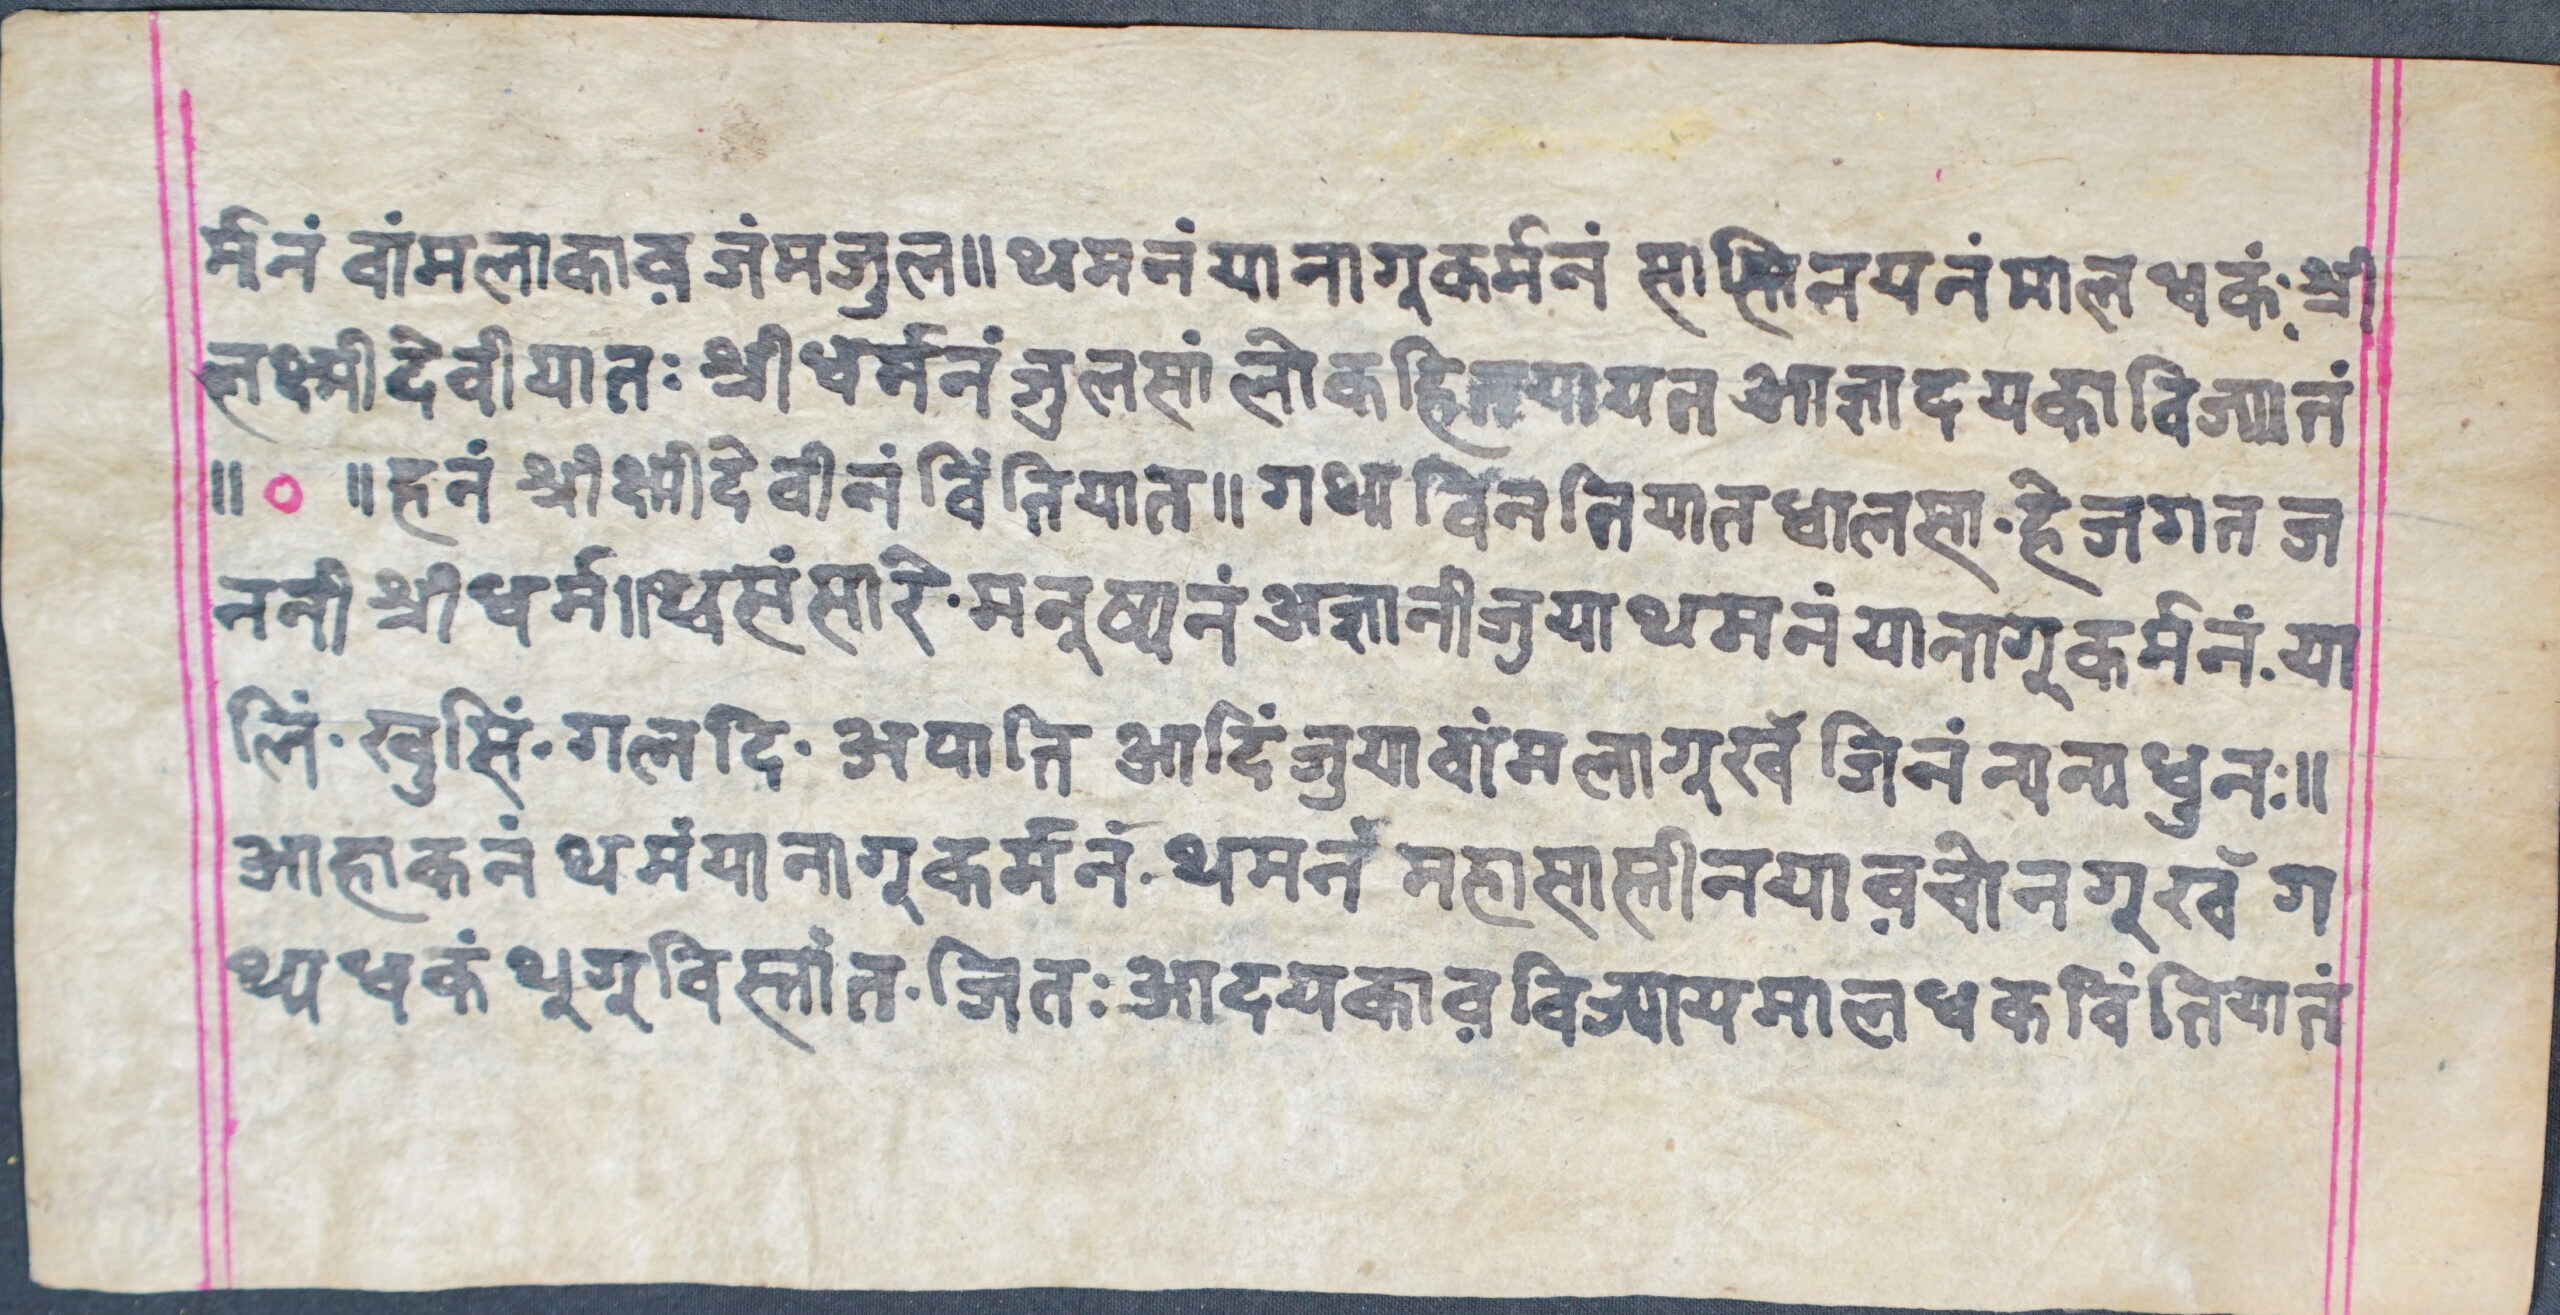 र्मनं वांमलाकाव़ जंमजुल॥ थमनं यानागूकर्मनं सास्तिनयनंमाल धकं: श्री
लक्ष्मीदेवीयात: श्रीधर्मनं जुलसां लोकहितयायत आज्ञादयका विज्यातं
॥ ० ॥ हनं श्रीक्ष्मीदेवीनं विंतियात॥ गथ्य विनतियातधालसा · हे जगत ज
ननी श्रीधर्म॥ थ्वसंसारे · मनुष्यनं अज्ञानीजुया थमनं यानागूकर्मनं · या
लिं · खुसिं · गलदि · अपाति आदिं जुयावांमलागूखँ जिनं न्यन्यधुन:॥
आहाकनं थमंयानागूकर्मनं · थमनं महासास्तीनयाव़चोनगूखँ ग
थ्य धकं थूगूविस्तांत · जित: आदयकाव़ विज्यायमाल धक विंतियातं